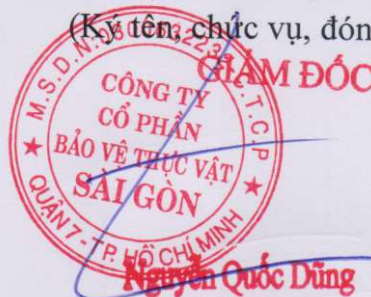 (Ký tên, chức vụ, đón
GIÁM ĐỐC
M.S.D.N: C.T.C.P
CÔNG TY
CỔ PHẦN
BẢO VỆ THỰC VẬT
SÀI GÒN
QUẬN 7 - TP. HỒ CHÍ MINH
Nguyễn Quốc Dũng